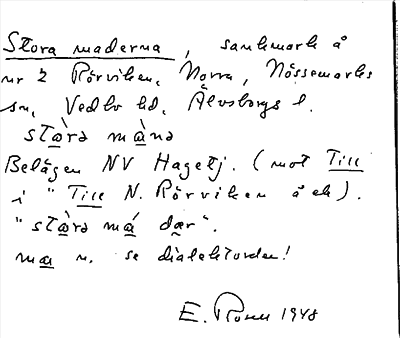 Stora maderna, sankmark å
nr 2 Rörviken, Norra, Nössemarks
sn, Vedbo hd, Älvsborgs l.
stὰrə mὰnə
Belägen NV Hagetj. (mot Till
i "Till N. Rörviken å ek).
"stὰrə má dær".
ma n. se dialektorden!
E. 1948